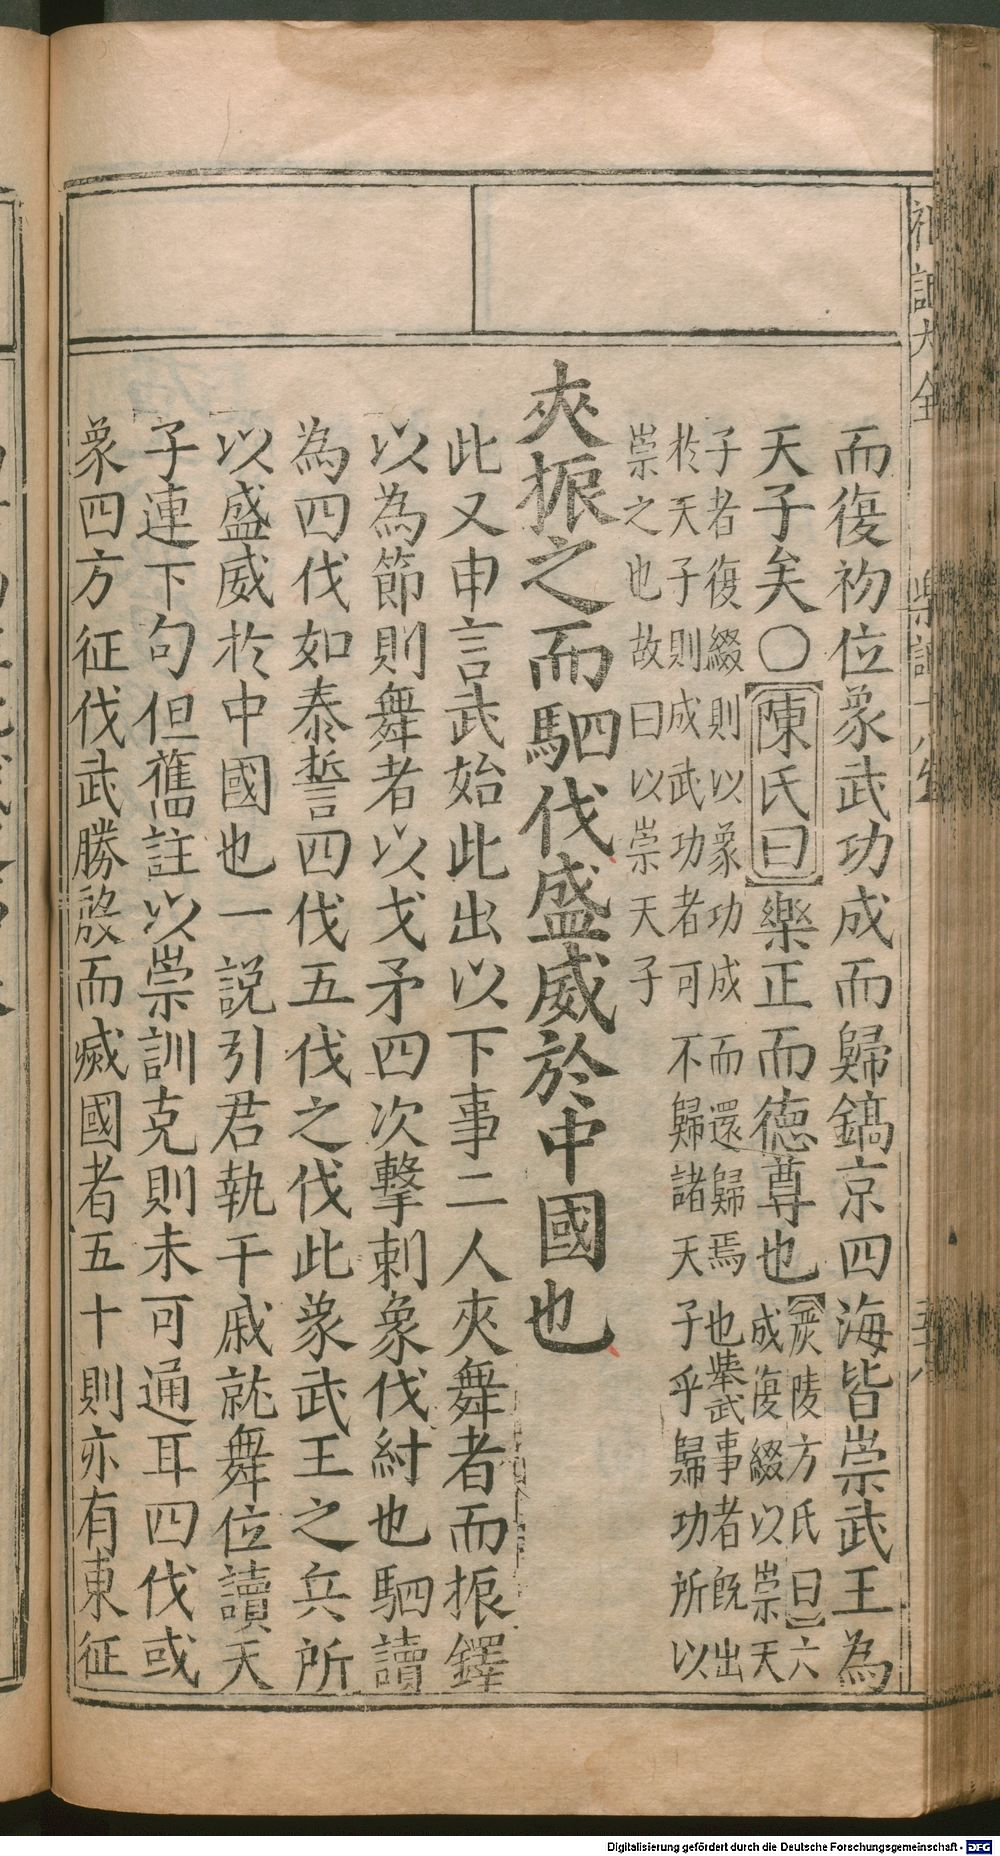 而復初位象武功成而歸鎬京四海皆崇武王為
天子矣〇陳氏曰樂正而德尊也嚴陵方氏曰六
成復綴以崇天
子者復綴則以象功成而還歸焉也蓽武事者旣出
於天子則成武功者可不歸諸天子乎歸功所以
崇之也故曰以崇天子
夾振之而駟伐盛威於中國也
此又申言武始北出以下事二人夾舞者而振鐸
以為節則舞者以戈矛四次擊刺象伐紂也駟讀
為四伐如泰誓四伐五伐之伐此象武王之兵所
以盛威於中國也一說引君執干戚就舞位讀天
子連下句但舊註以崇訓克則未可通耳四伐或
象四方征伐武勝殷而滅國者五十則亦有東征
Digitalisierung gefördert durch die Deutsche Forschungsgemeinschaft - DFG